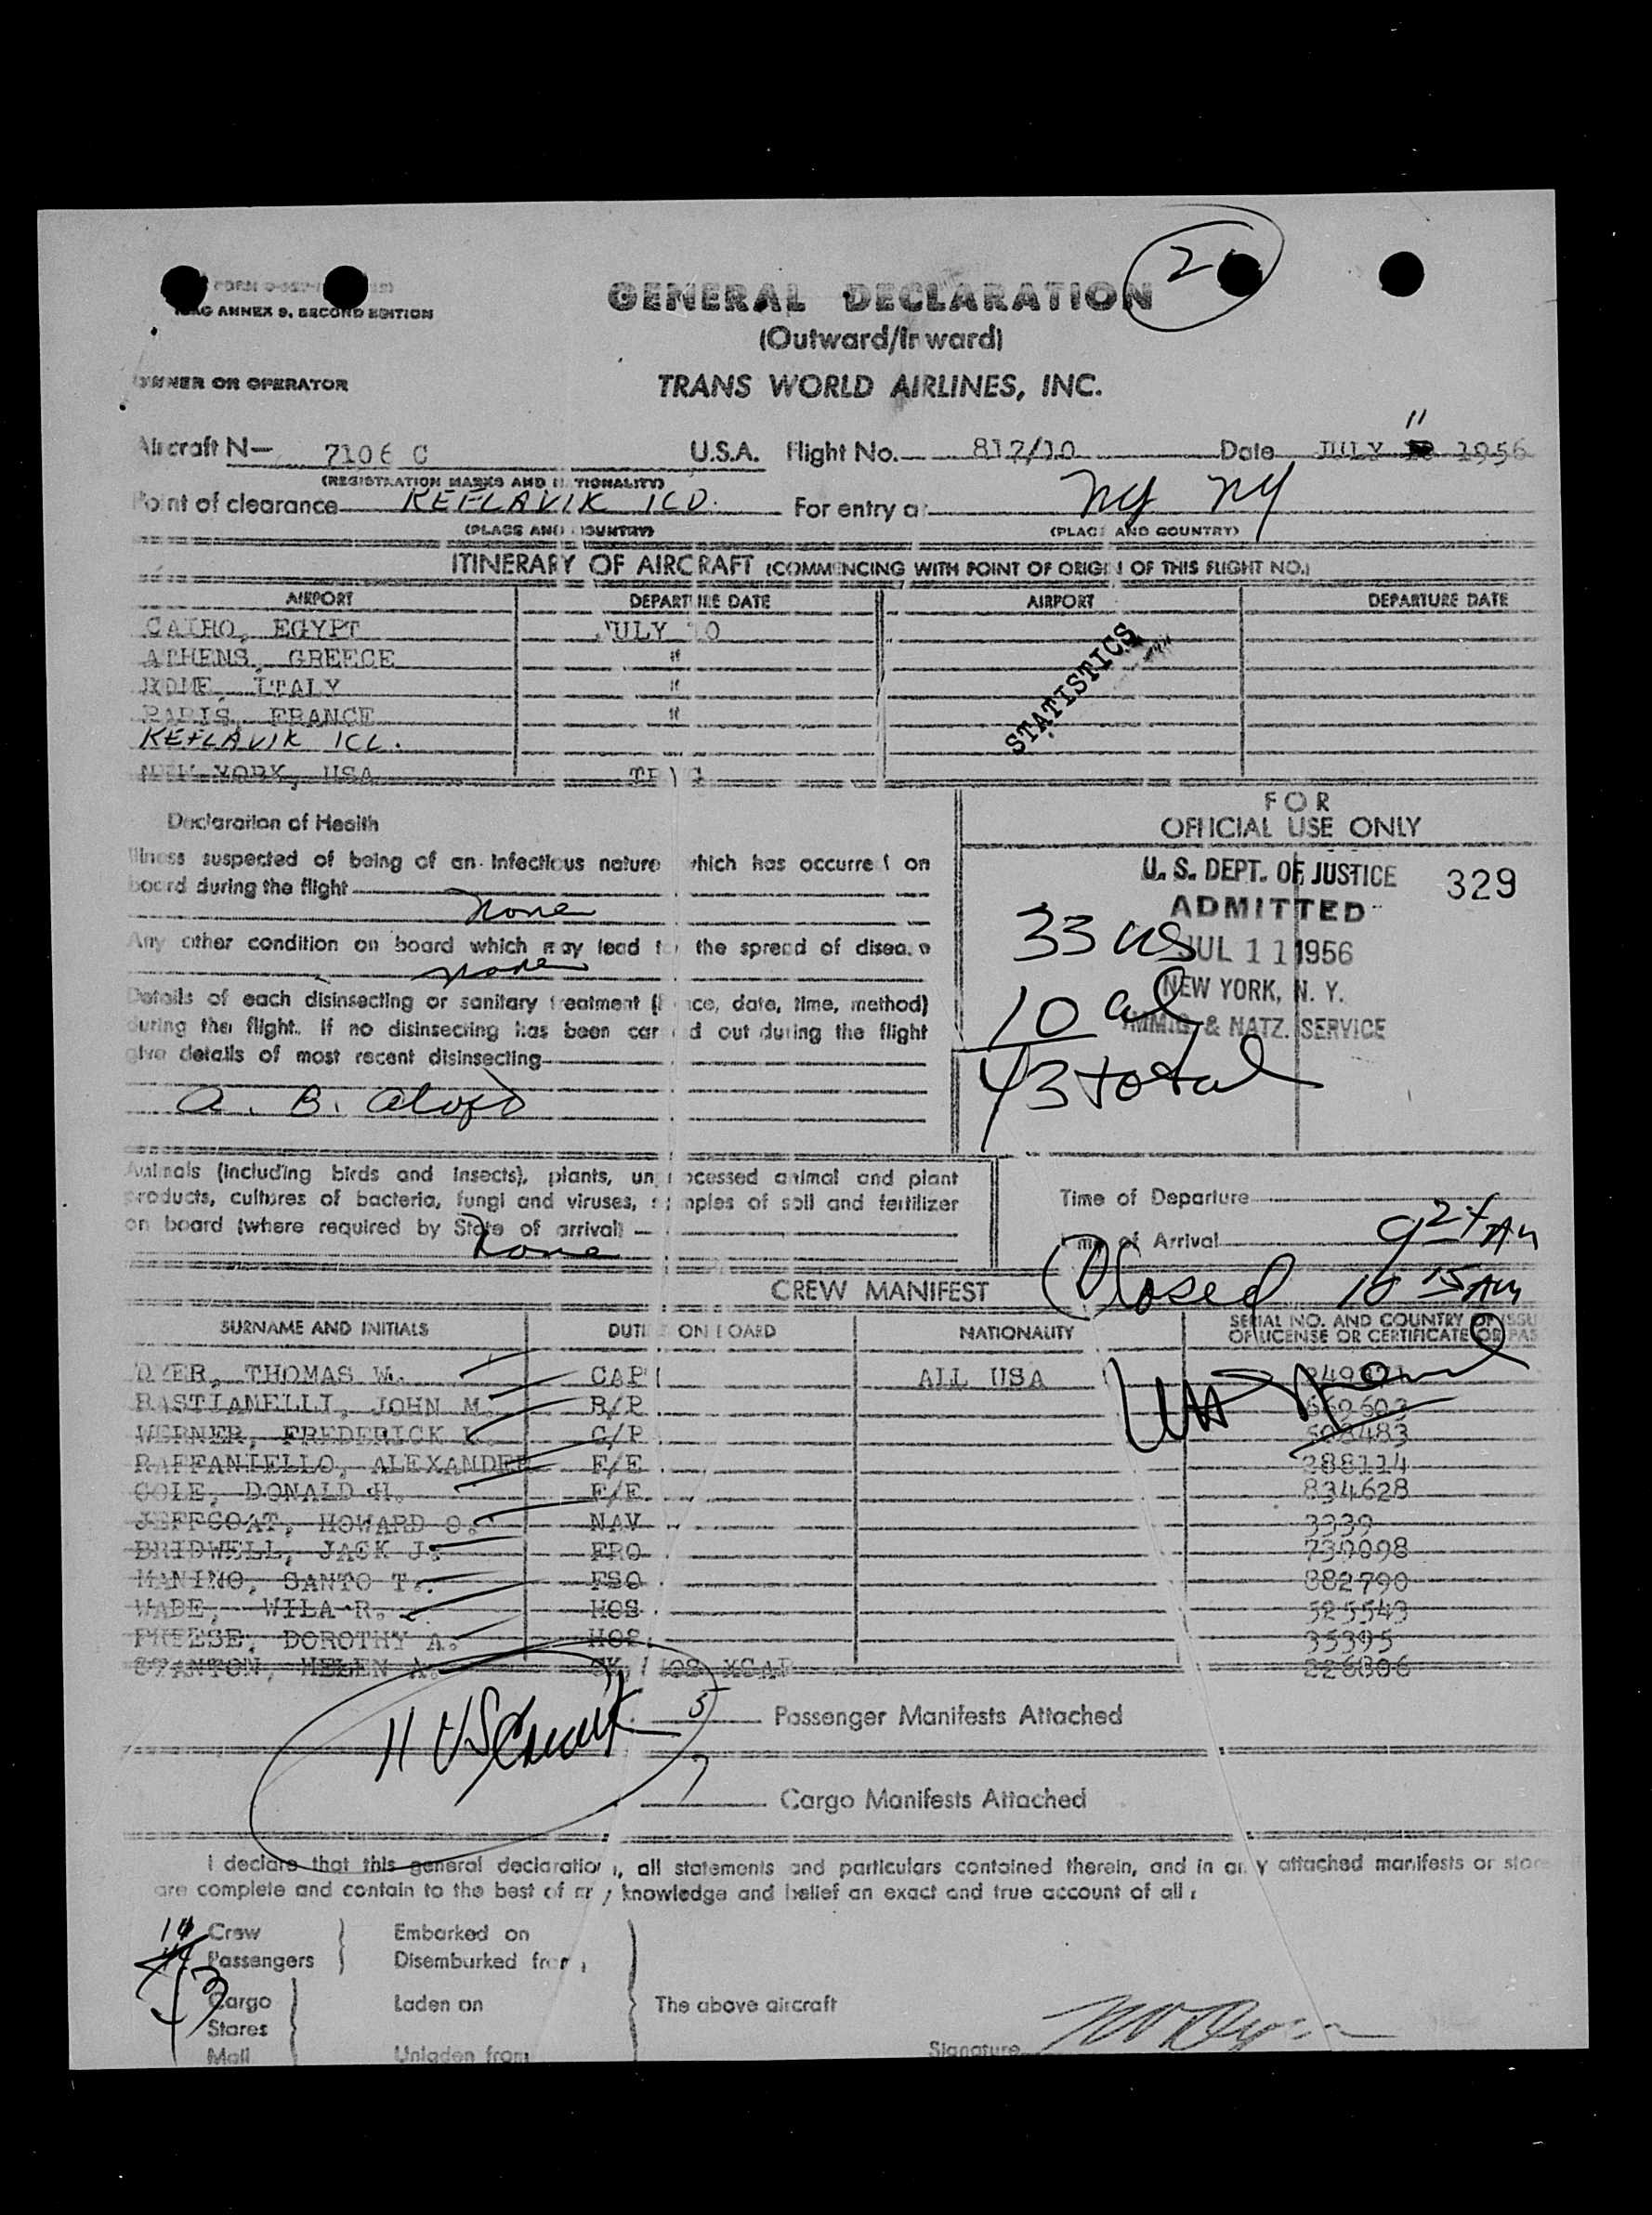 2
ANNEX 9, SECOND EDITION
GENERAL DECLARATION
(Outward/Inward)
OWNER OR OPERATOR
TRANS WORLD AIRLINES, INC.
Aircraft N— 7106 C U.S.A. Flight No. 812/10 Date JULY 11 1956
(REGISTRATION MARKS AND NATIONALITY)
Point of clearance KEFLAVIK ICD. For entry at NY NY
(PLACE AND COUNTRY) (PLACE AND COUNTRY)
ITINERARY OF AIRCRAFT (COMMENCING WITH POINT OF ORIGIN OF THIS FLIGHT NO.)
AIRPORT DEPARTURE DATE AIRPORT DEPARTURE DATE
CAIRO, EGYPT JULY 10
ATHENS, GREECE "
ROME, ITALY "
PARIS, FRANCE "
KEFLAVIK ICL.
NEW YORK, USA
STATISTICS
Declaration of Health
Illness suspected of being of an infectious nature which has occurred on
board during the flight
none
Any other condition on board which may lead to the spread of disease
none
Details of each disinsecting or sanitary treatment (place, date, time, method)
during the flight. If no disinsecting has been carried out during the flight
give details of most recent disinsecting
A. B.
FOR
OFFICIAL USE ONLY
U. S. DEPT. OF JUSTICE 329
ADMITTED
33 US JUL 11 1956
10 al NEW YORK, N. Y.
IMMIG. & NATZ. SERVICE
43 total
Animals (including birds and insects), plants, unprocessed animal and plant
products, cultures of bacteria, fungi and viruses, samples of soil and fertilizer
on board (where required by State of arrival)
none
Time of Departure
Time of Arrival 9 AM
Closed 10 15 AM
CREW MANIFEST
SURNAME AND INITIALS DUTIES ON BOARD NATIONALITY SERIAL NO. AND COUNTRY OF ISSU
OF LICENSE OR CERTIFICATE OR PAS
DYER, THOMAS W. CAPT ALL USA
BASTIANELLI, JOHN M. R/P
WERNER, FREDERICK K. C/P
RAFFANIELLO, ALEXANDER F/E 288114
COLE, DONALD H. F/E 834628
JEFFCOAT, HOWARD O. NAV 3339
BRIDWELL, JACK J. FRO 739098
MANINO, SANTO T. FSO 882790
WADE, WILA R. HOS 525543
FREESE, DOROTHY A. HOS 35395
STANTON, HELEN A. HOS XCAP 226806
5 Passenger Manifests Attached
Cargo Manifests Attached
I declare that this general declaration, all statements and particulars contained therein, and in any attached manifests or stor
are complete and contain to the best of my knowledge and belief an exact and true account of all
Crew Embarked on
Passengers Disembarked from
43
Cargo Laden on The above aircraft
Stores
Mail Unladen from
Signature